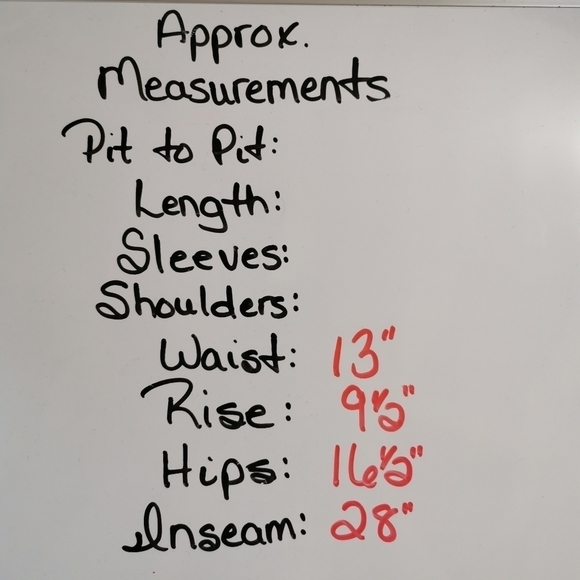 Approx.
Measurements
Pit to Pit:
Length:
Sleeves:
Shoulders:
Waist: 13"
Rise: 9½"
Hips: 16½"
Inseam: 28"